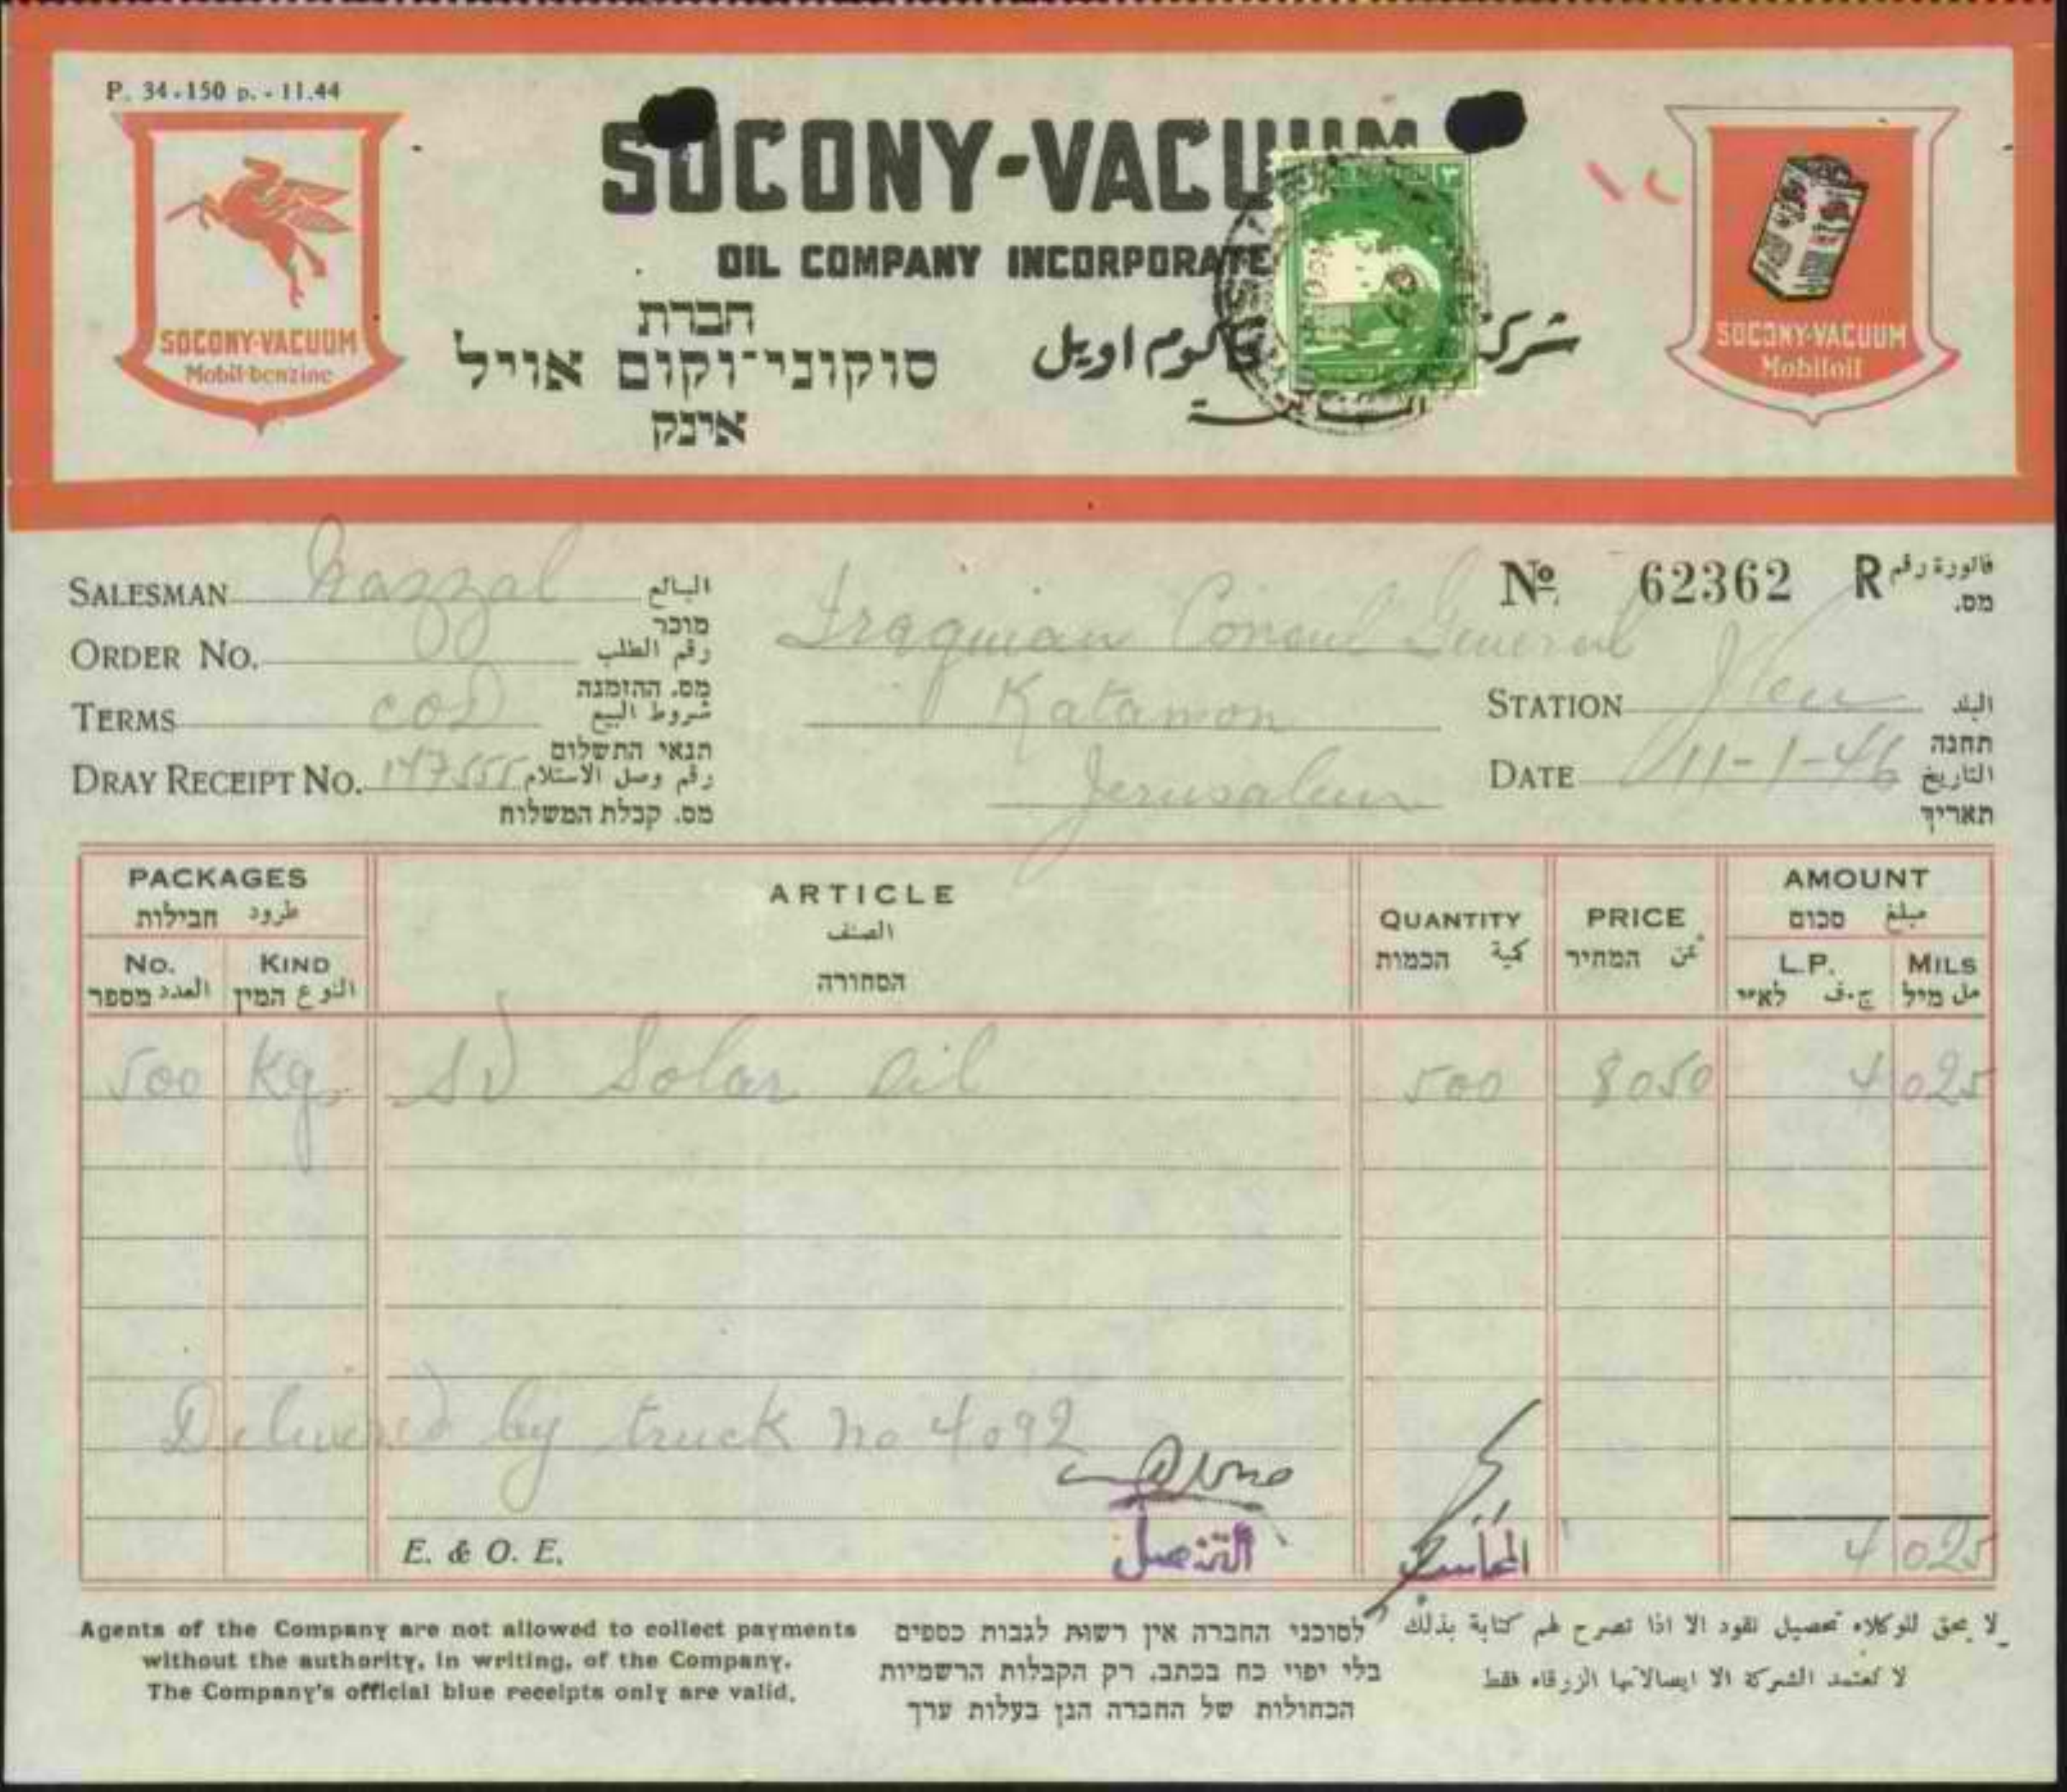 P. 34-150 p. - 11.44
SOCONY-VACUUM
OIL COMPANY INCORPORATE
חברת
סוקוני־וקום אויל
אינק
شركة
ڤاكوم اويل
SOCONY-VACUUM
Mobil-benzine
SOCONY-VACUUM
Mobiloil
SALESMAN Nazzal البائع
מוכר
ORDER No. رقم الطلب
מס. ההזמנה
TERMS COD شروط البيع
תנאי התשלום
DRAY RECEIPT No. 147555 رقم وصل الاستلام
מס. קבלת המשלוח
Iraquian Consul General
Katamon
Jerusalem
No 62362 R فاتورة رقم
מס.
STATION Jlem البلد
תחנה
DATE 11-1-46 التاريخ
תאריך
PACKAGES
طرود חבילות
No.
العدد מספר
KIND
النوع המין
ARTICLE
الصنف
הסחורה
QUANTITY
كمية הכמות
PRICE
ثمن המחיר
AMOUNT
مبلغ סכום
L.P.
ج.ف לא״י
MILS
مل מיל
500 Kgs SV Solar Oil 500 8050 4 025
Delivered by truck no 4092
المحاسب
E. & O. E. 4 025
Agents of the Company are not allowed to collect payments
without the authority, in writing, of the Company.
The Company's official blue receipts only are valid.
לסוכני החברה אין רשות לגבות כספים
בלי יפוי כח בכתב. רק הקבלות הרשמיות
הכחולות של החברה הנן בעלות ערך
لا يحق للوكلاء تحصيل نقود الا اذا تصرح لهم كتابة بذلك
لا تعتمد الشركة الا ايصالاتها الزرقاء فقط